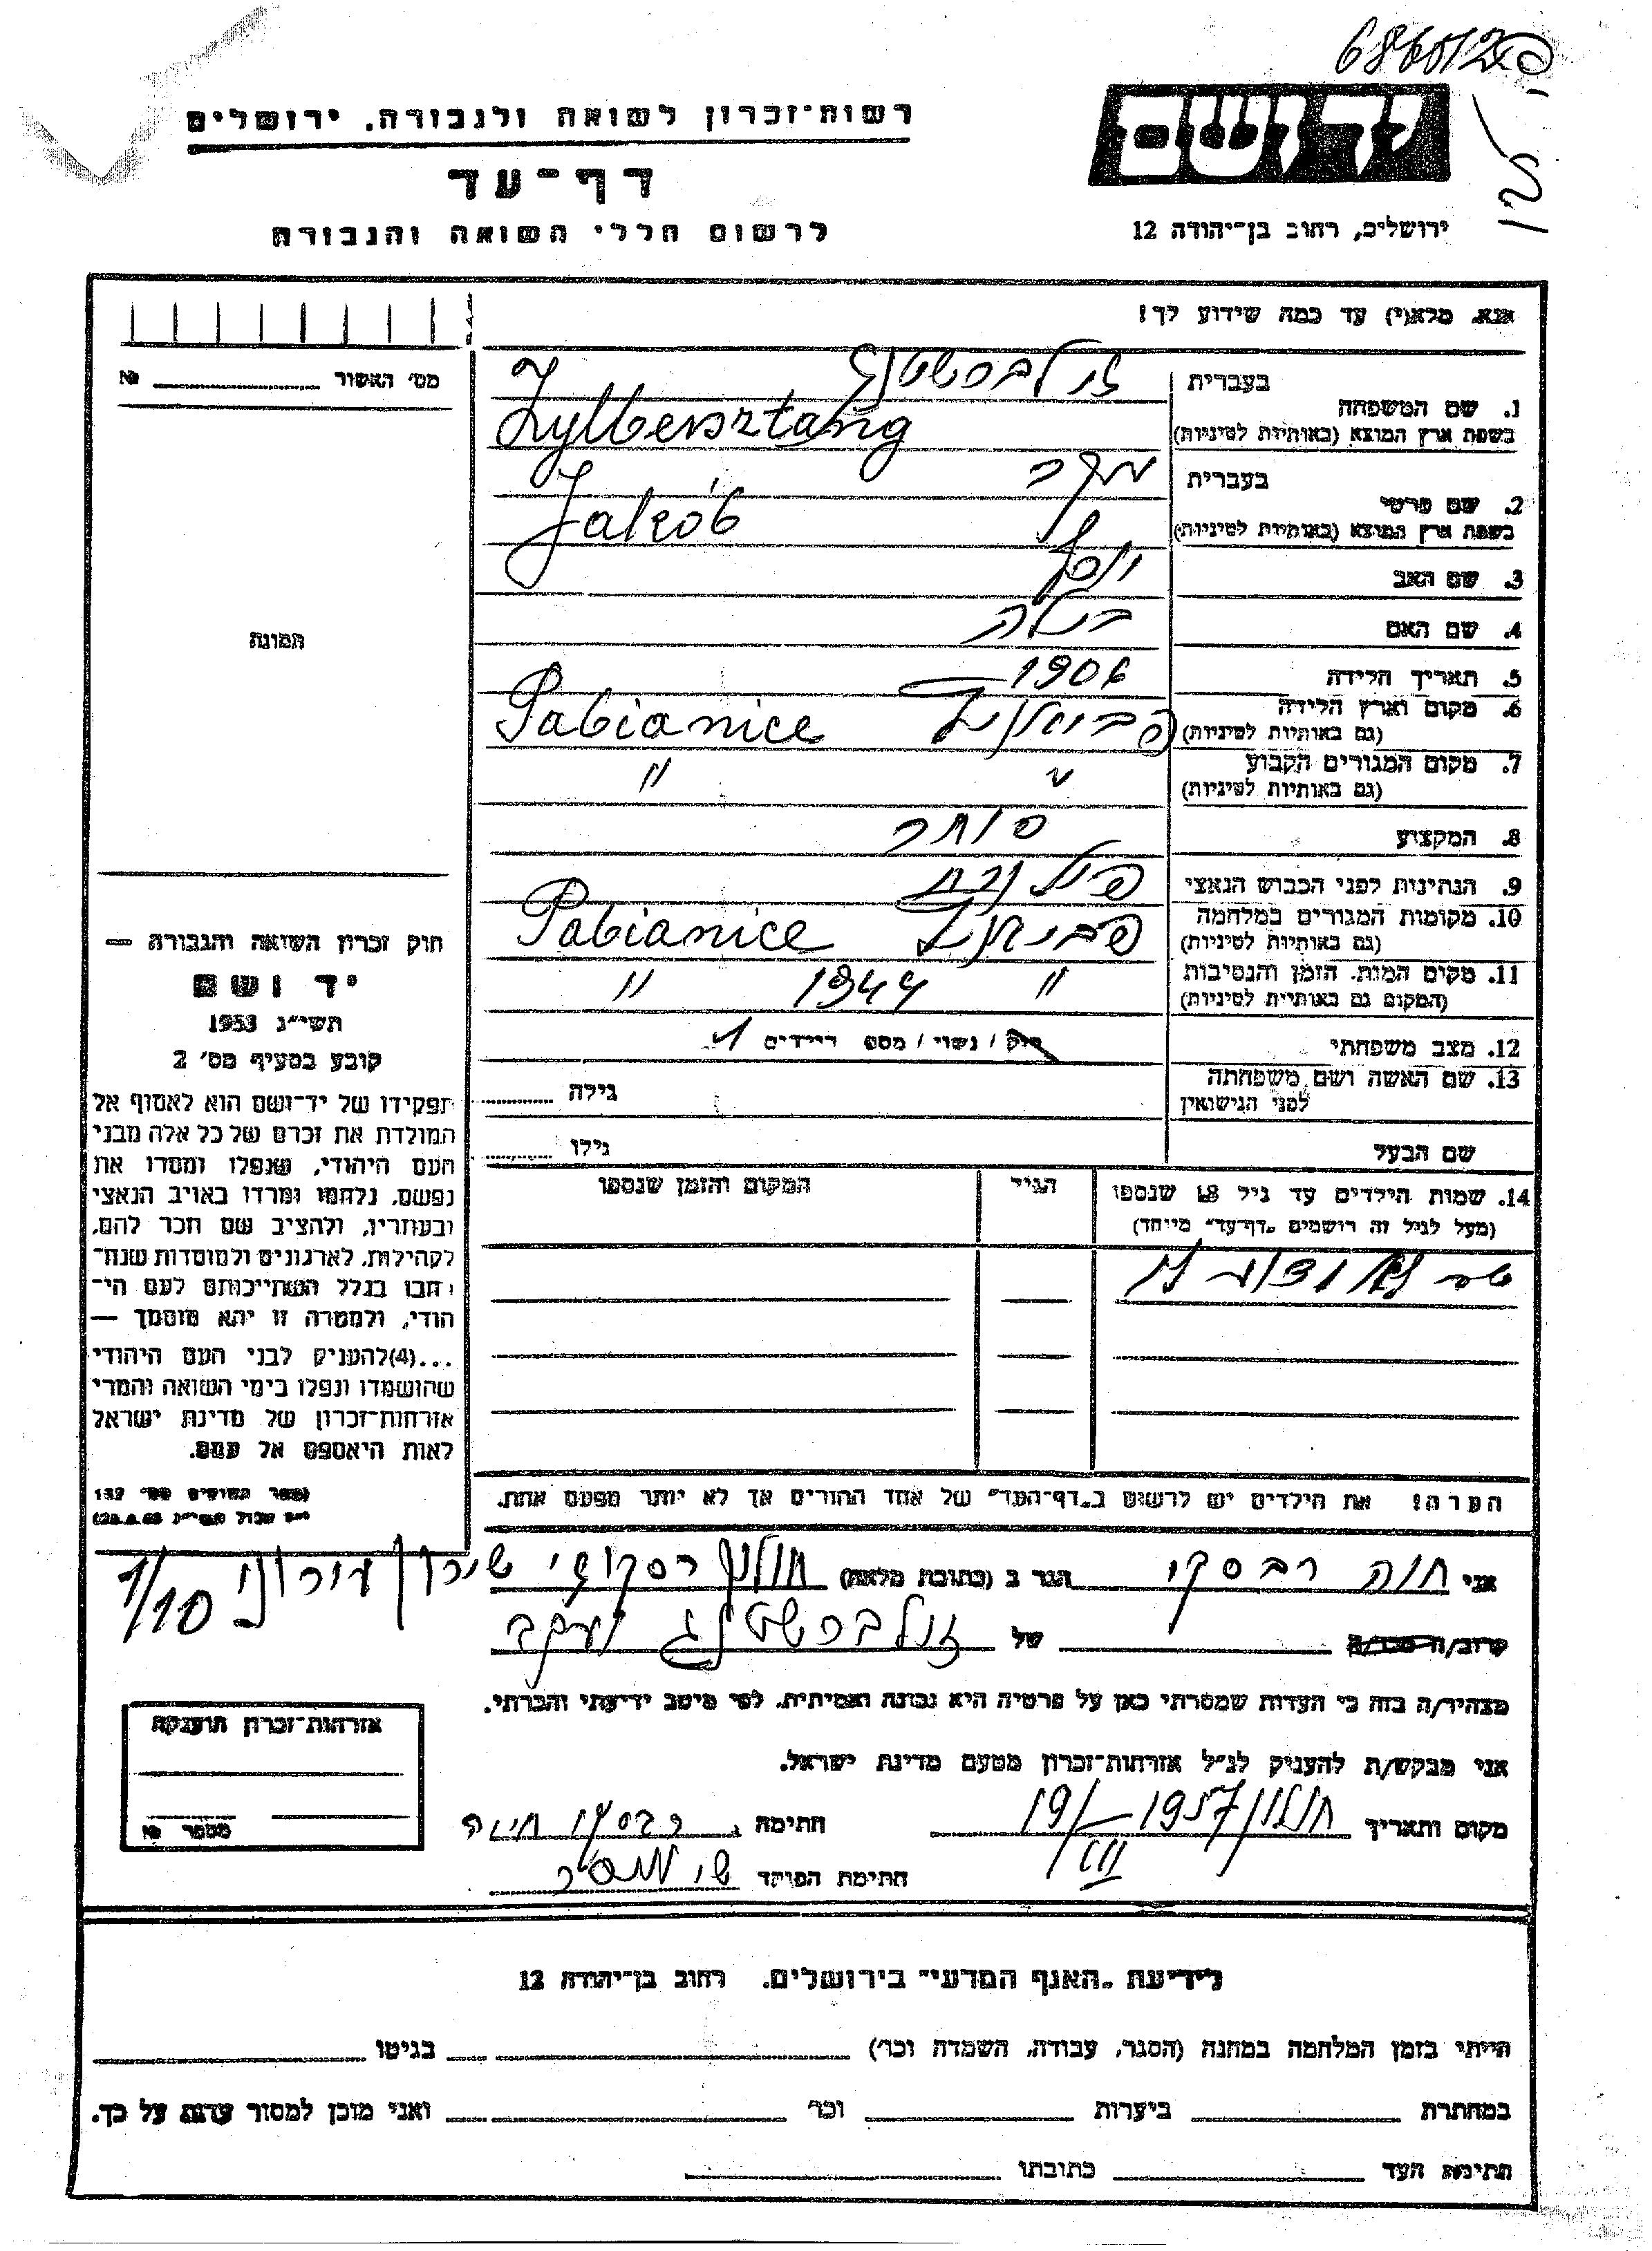 686/512
רשות־זכרון לשואה ולגבורה, ירושלים
יד ושם
דף־עד
לרשום חללי השואה והגבורה
ירושלים, רחוב בן־יהודה 12
אנא, מלא(י) עד כמה שידוע לך!
מס׳ האשור № 
בעברית זילברשטנג
1. שם המשפחה
בשפת ארץ המוצא (באותיות לטיניות) Zylbersztang
בעברית יעקב
2. שם פרטי
בשפת ארץ המוצא (באותיות לטיניות) Jakób
3. שם האב יוסף
4. שם האם ביילה
5. תאריך הלידה 1906
6. מקום וארץ הלידה פביאניץ Pabianice
(גם באותיות לטיניות)
7. מקום המגורים הקבוע " "
(גם באותיות לטיניות)
8. המקצוע סוחר
9. הנתינות לפני הכבוש הנאצי פולנית
10. מקומות המגורים במלחמה פביאניץ Pabianice
(גם באותיות לטיניות)
11. מקום המות, הזמן והנסיבות " 1944 "
(המקום גם באותיות לטיניות)
12. מצב משפחתי רווק / נשוי / מספר ילדים
13. שם האשה ושם משפחתה גילה
לפני הנישואין
שם הבעל גילו
תמונה
חוק זכרון השואה והגבורה —
יד ושם
תשי״ג 1953
קובע בסעיף מס׳ 2
תפקידו של יד־ושם הוא לאסוף אל
המולדת את זכרם של כל אלה מבני
העם היהודי, שנפלו ומסרו את
נפשם, נלחמו ומרדו באויב הנאצי
ובעוזריו, ולהציב שם וזכר להם,
לקהילות, לארגונים ולמוסדות שנח־
רבו בגלל השתייכותם לעם הי־
הודי, ולמטרה זו יהא מוסמך —
...(4)להעניק לבני העם היהודי
שהושמדו ונפלו בימי השואה והמרי
אזרחות־זכרון של מדינת ישראל
לאות היאספם אל עמם.
(ספר החוקים מס׳ 132
14. שמות הילדים עד גיל 18 שנספו הגיל המקום והזמן שנספו
(מעל לגיל זה רושמים „דף־עד״ מיוחד)
הערה! את הילדים יש לרשום ב„דף־העד״ של אחד ההורים אך לא יותר מפעם אחת.
אני חוה רבסקי הגר ב (כתובת מלאה) חולון 1/10
קרוב/ה של זילברשטנג יעקב
מצהיר/ה בזה כי העדות שמסרתי כאן על פרטיה היא נכונה ואמיתית, לפי מיטב ידיעתי והכרתי.
אני מבקש/ת להעניק לנ״ל אזרחות־זכרון מטעם מדינת ישראל.
מקום ותאריך חולון 19/III–1957 חתימה רבסקי חוה
חתימת הפוקד
אזרחות־זכרון תוענקה
מספר №
לידיעת „האגף המדעי״ בירושלים, רחוב בן־יהודה 12
הייתי בזמן המלחמה במחנה (הסגר, עבודה, השמדה וכו׳) בגיטו
במחתרת ביערות וכו׳ ואני מוכן למסור עדות על כך.
חתימת העד כתובתו